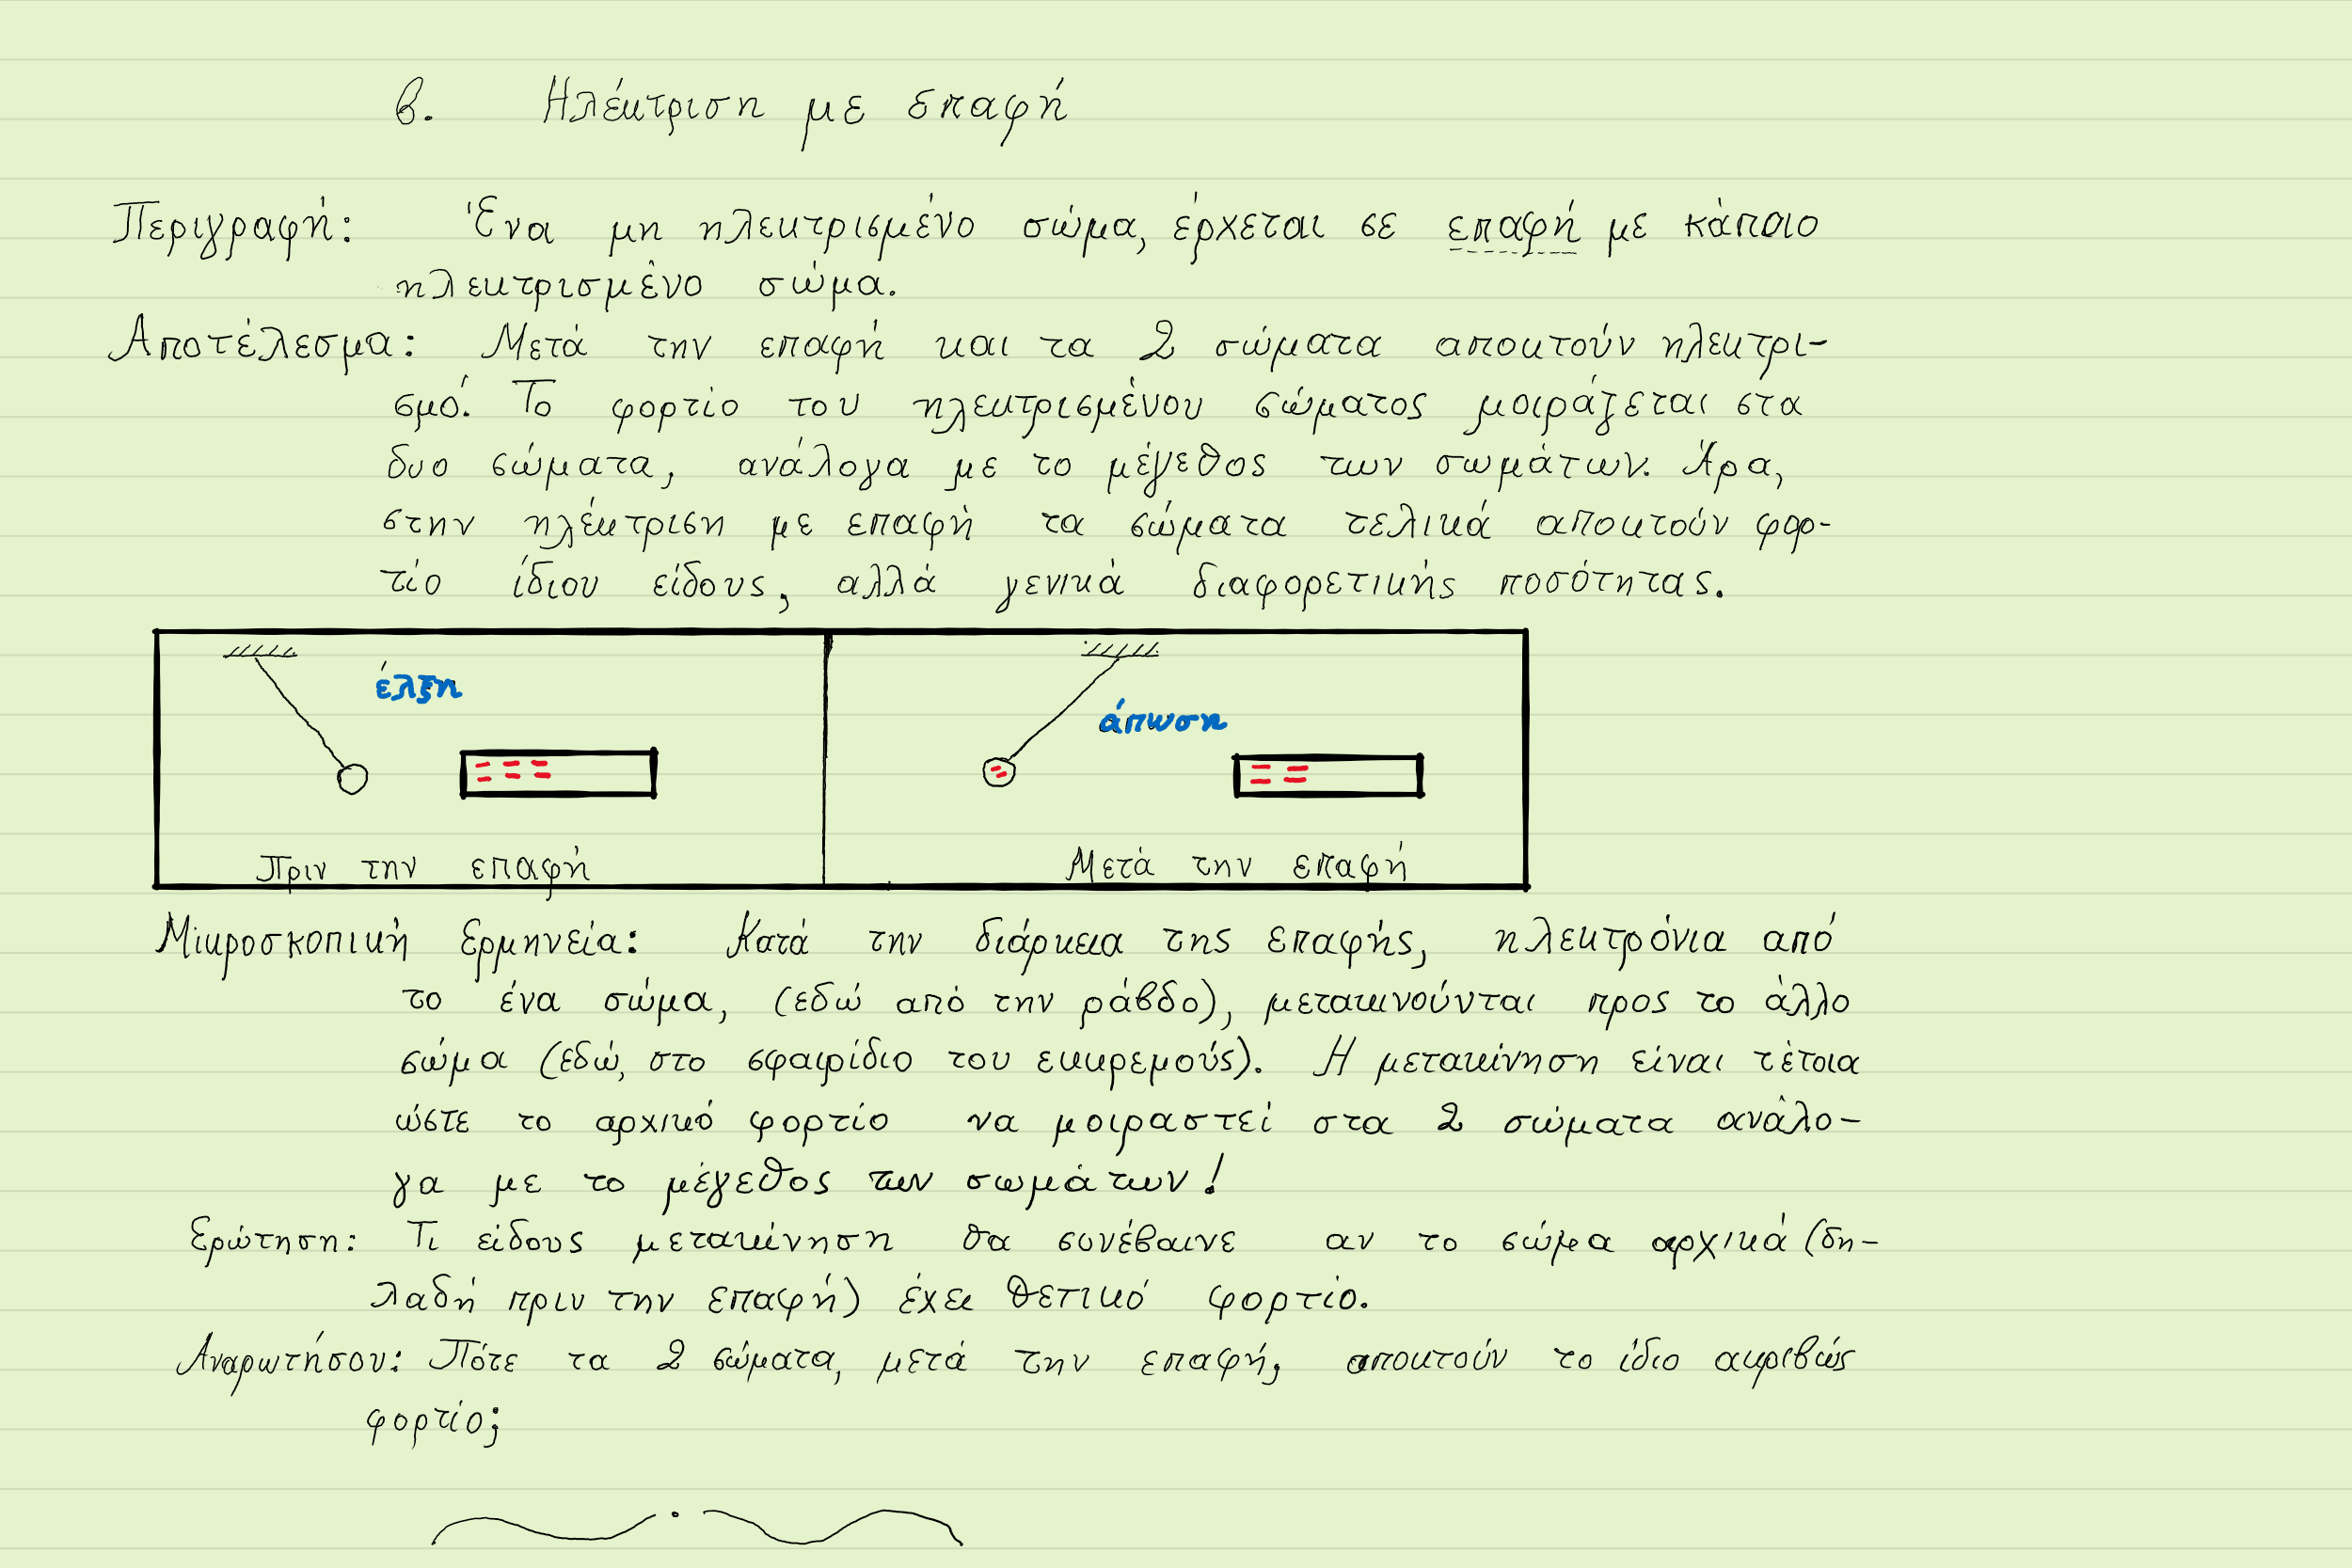 β. Ηλέκτριση με επαφή
Περιγραφή: Ένα μη ηλεκτρισμένο σώμα, έρχεται σε επαφή με κάποιο
ηλεκτρισμένο σώμα.
Αποτέλεσμα: Μετά την επαφή και τα 2 σώματα αποκτούν ηλεκτρι-
σμό. Το φορτίο του ηλεκτρισμένου σώματος μοιράζεται στα
δυο σώματα, ανάλογα με το μέγεθος των σωμάτων. Άρα,
στην ηλέκτριση με επαφή τα σώματα τελικά αποκτούν φορ-
τίο ίδιου είδους, αλλά γενικά διαφορετικής ποσότητας.
έλξη
άπωση
Πριν την επαφή
Μετά την επαφή
Μικροσκοπική Ερμηνεία: Κατά την διάρκεια της επαφής, ηλεκτρόνια από
το ένα σώμα, (εδώ από την ράβδο), μετακινούνται προς το άλλο
σώμα (εδώ, στο σφαιρίδιο του εκκρεμούς). Η μετακίνηση είναι τέτοια
ώστε το αρχικό φορτίο να μοιραστεί στα 2 σώματα ανάλο-
γα με το μέγεθος των σωμάτων!
Ερώτηση: Τι είδους μετακίνηση θα συνέβαινε αν το σώμα αρχικά (δη-
λαδή πριν την επαφή) έχει θετικό φορτίο.
Αναρωτήσου: Πότε τα 2 σώματα, μετά την επαφή, αποκτούν το ίδιο ακριβώς
φορτίο;